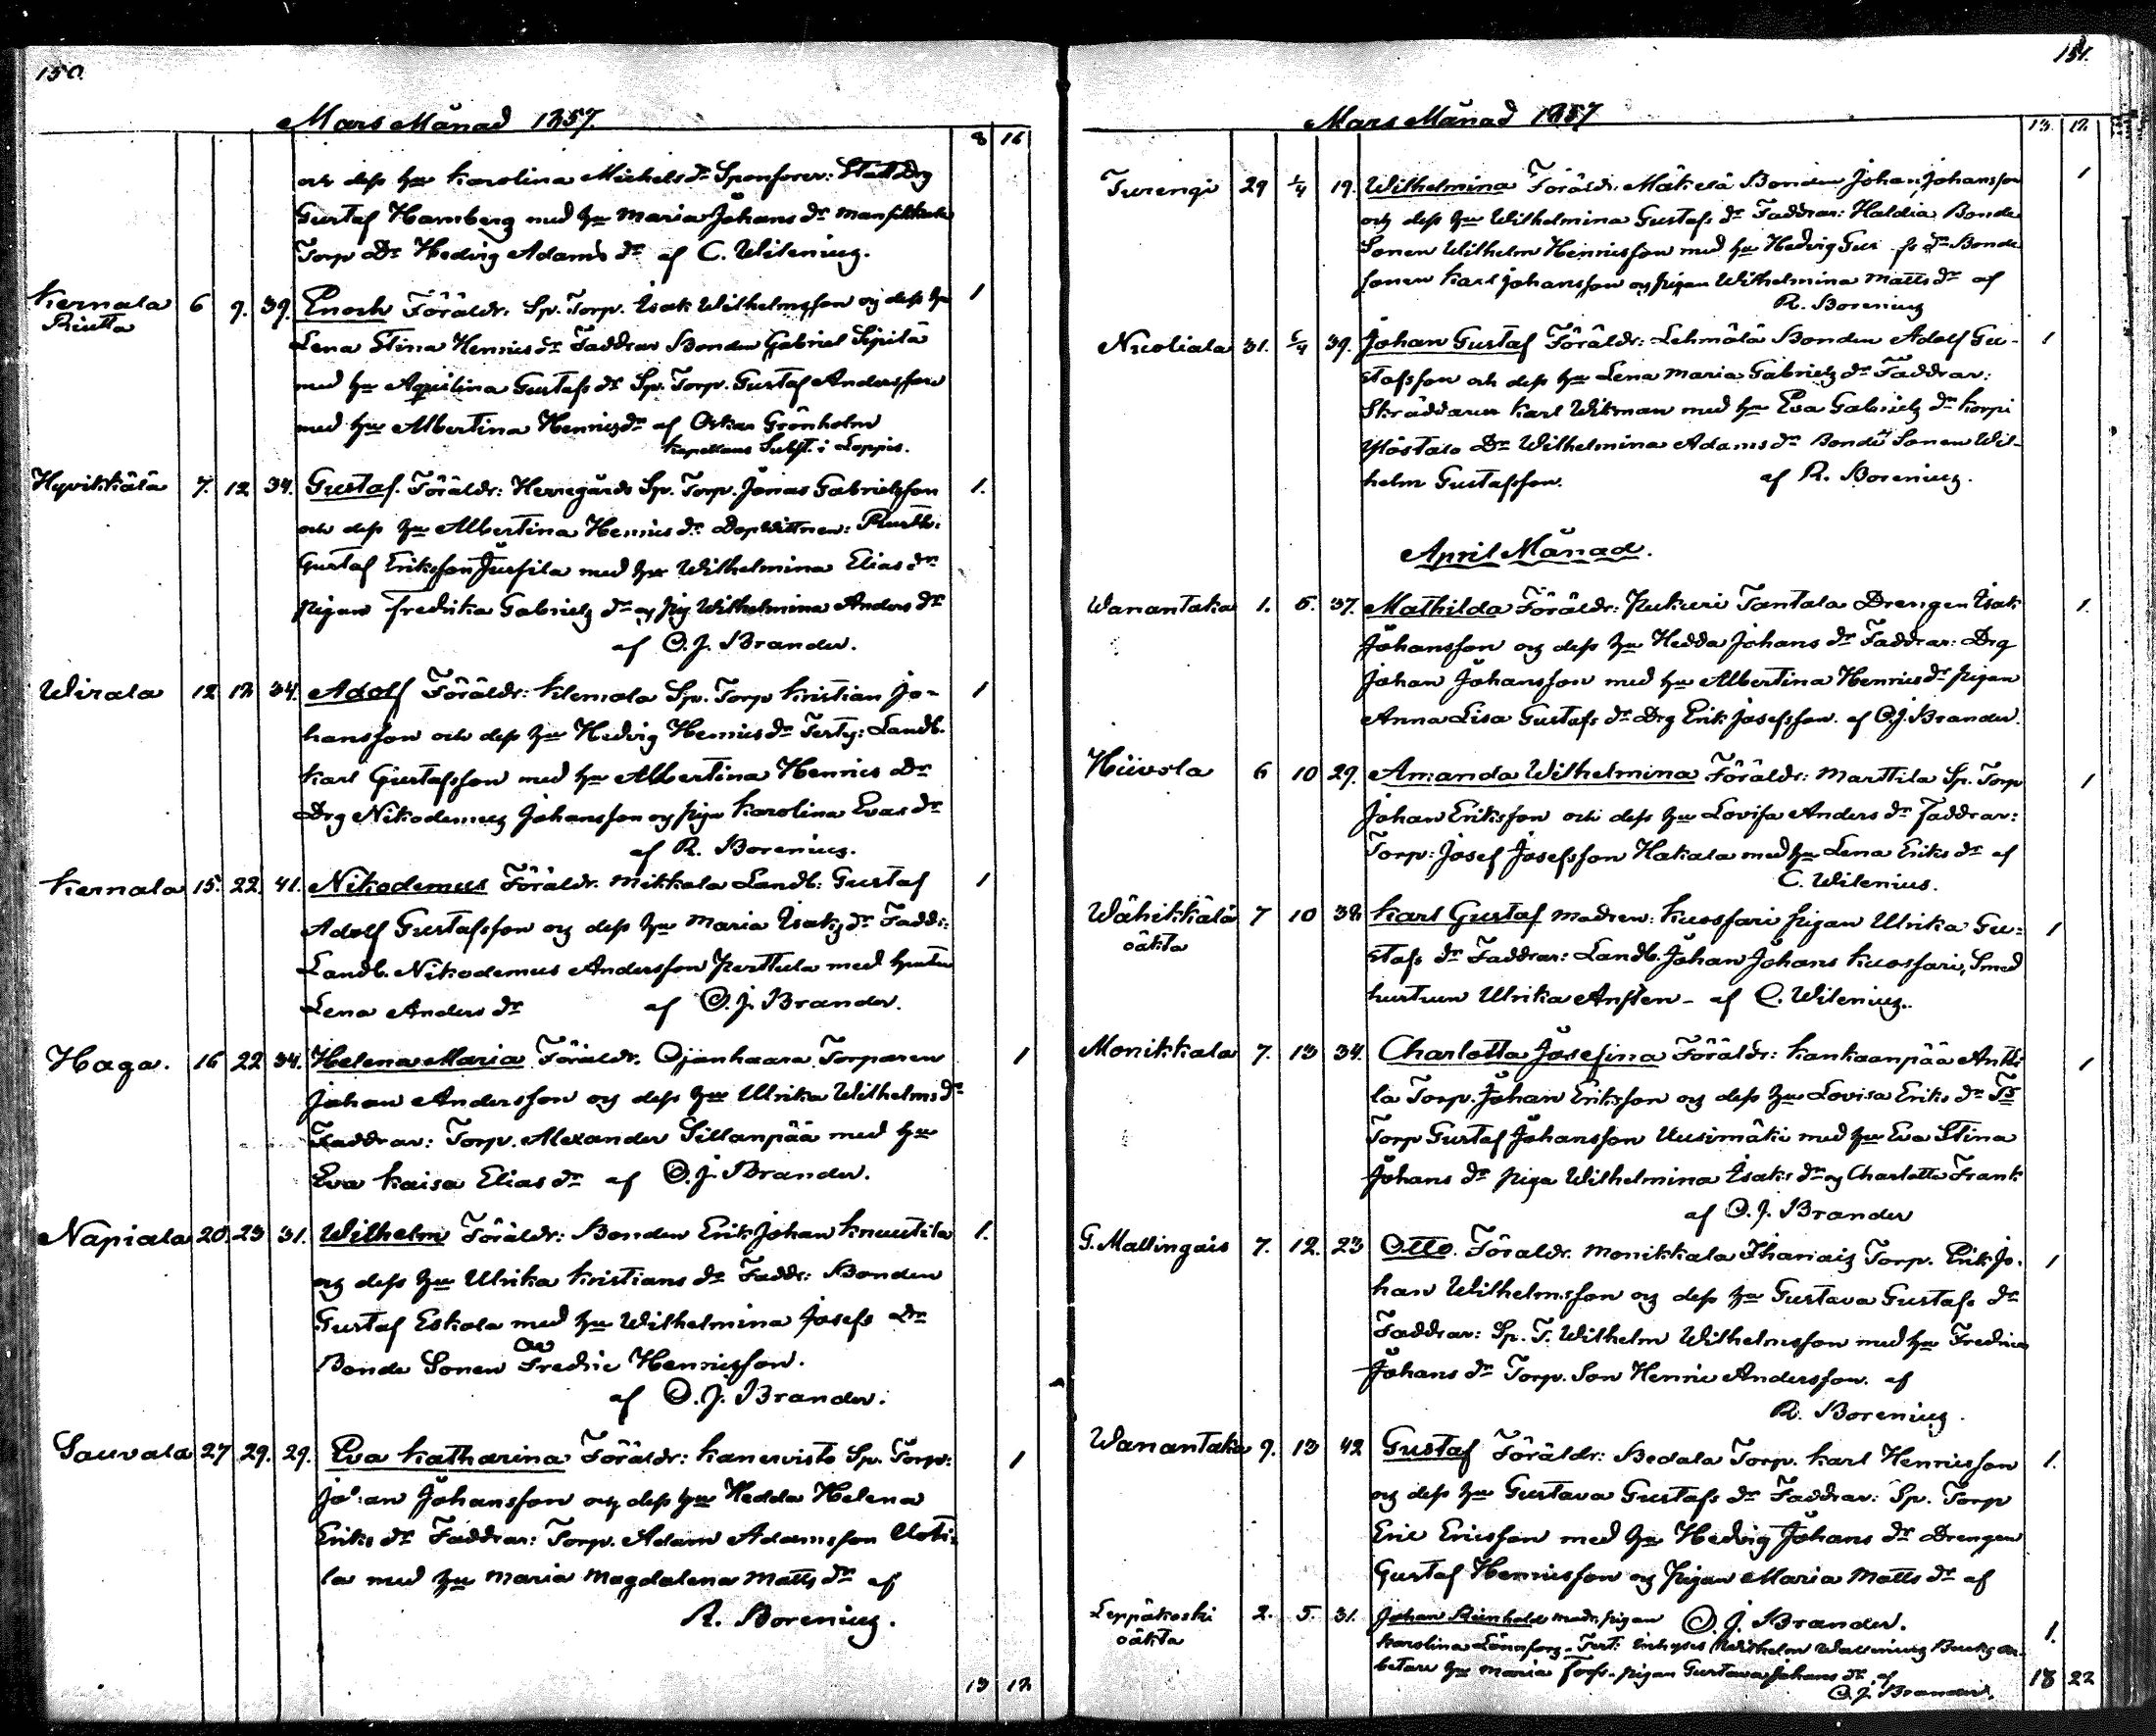 150.
Mars Månad 1857.
8 16
och dess hu Karolina Michels dr Sponsorer: Statt Drg
Gustaf Hamberg med hu Maria Johans dr
Torp Dr Hedvig Adams dr af C. Wilenius.
Kernala 6 9. 39. Enoch Föräldr. Sp. Torp. Isak Wilhelmsson og dess hu 1
Riutta
Lena Stina Henrics dr Faddrar Bonden Gabriel Sipilä
med hu Aqvilina Gustafs dr Sp. Torp. Gustaf Andersson
med hu Albertina Henrics dr af Oskar Grönholm
Kapellans Subst. i Loppis.
Hyvikkälä 7. 12 34. Gustaf. Föräldr: Herregårds Sp. Torp. Jonas Gabrielsson 1.
och dess hu Albertina Henrics dr Dopvittnen: Rusth:
Gustaf Eriksson Jussila med hu Wilhelmina Elias dr
pigan Fredrika Gabriels dr og pig Wilhelmina Anders dr
af O. J. Brander.
Wirala 12 12 34. Adolf Föräldr: Klemola Sp. Torp Kristian Jo- 1
hansson och dess hu Hedvig Henrics dr Testg: Landb.
Karl Gustafsson med hu Albertina Henrics Dr
Drg Nikodemus Johansson og piga Karolina Evas dr
af R. Borenius.
Kernala 15. 22. 41. Nikodemus Föräldr. Mikkala Landb: Gustaf 1
Adolf Gustafsson og dess hu Maria Isaks dr Faddr:
Landb. Nikodemus Andersson Perttula med hustru
Lena Anders dr af O. J. Brander.
Haga. 16 22 34. Helena Maria Föräldr. Ojanhaara Torparen 1
Johan Andersson og dess hu Ulrika Wilhelms dr
Faddrar: Torp. Alexander Sillanpää med hu
Eva Kaisa Elias dr af O. J. Brander.
Napiala 20. 23 31. Wilhelm Föräldr: Bonden Erik Johan Knuutila 1.
og dess hu Ulrika Kristians dr Faddr: Bonden
Gustaf Eskola med hu Wilhelmina Josefs Dr
Bonde Sonen Fredric Henricsson.
af O. J. Brander.
Sauvala 27 29. 29. Eva Katharina Föräldr: Kanervisto Sp. Torp: 1
Johan Johansson og dess hu Hedda Helena
Eriks dr Faddrar: Torp. Adam Adamsson Uoti-
la med hu Maria Magdalena Matts dr af
R. Borenius.
13 12
151.
Mars Månad 1857
13. 12
Turengi 29 1/4 19. Wilhelmina Föräldr. Mäkelä Bonden Johan Johansson 1
og dess hu Wilhelmina Gustafs dr Faddrar: Haldia Bonde
Sonen Wilhelm Henricsson med hu Hedvig Gus fs dr Bonde
sonen Karl Johansson og pigan Wilhelmina Matts dr af
R. Borenius
Nuoliala 31. 5/4 39. Johan Gustaf Föräldr: Lehmälä Bonden Adolf Gu- 1
stafsson och dess hu Lena Maria Gabriels dr Faddrar:
Skräddaren Karl Wikman med hu Eva Gabriels dr Korpi
Ylöstalo Dr Wilhelmina Adams dr Bonde Sonen Wil-
helm Gustafsson. af R. Borenius.
April Månad.
Wanantaka 1. 5. 37. Mathilda Föräldr: Pukuri Tantala Drengen Isak 1.
Johansson og dess hu Hedda Johans dr Faddrar: Drg
Johan Johansson med hu Albertina Henrics dr pigan
Anna Lisa Gustafs dr Drg Erik Josefsson. af O. J. Brander.
Hiivola 6 10 29. Amanda Wilhelmina Föräldr: Marttila Sp. Torp 1
Johan Eriksson och dess hu Lovisa Anders dr faddrar:
Torp: Josef Josefsson Hakala med hu Lena Eriks dr af
C. Wilenius.
Wähikkälä 7 10 38 Karl Gustaf Modren: Kuossari pigan Ulrika Gu- 1
oäkta
stafs dr Faddrar: Landb. Johan Johans Kuossari, Smed
hustrun Ulrika Ansten - af C. Wilenius.
Monikkala 7. 13 34. Charlotta Josefina Föräldr: Kankaanpää Antti 1
la Torp. Johan Eriksson og dess hu Lovisa Eriks dr
Torp Gustaf Johansson Uusimäki med hu Eva Stina
Johans dr piga Wilhelmina Isaks dr og Charlotta Frank
af O. J. Brander
G. Mallingais 7. 12. 23 Otto. Föraldr. Monikkala Ihanais Torp. Erik Jo- 1
han Wilhelmsson og dess hu Gustava Gustafs dr
Faddrar: Sp. T. Wilhelm Wilhelmsson med hu Fredrica
Johans dr Torp. Son Henric Andersson. af
R. Borenius.
Wanantaka 9. 13 42 Gustaf Föräldr: Bodala Torp. Karl Henricsson 1.
og dess hu Gustava Gustafs dr Faddrar: Sp. Torp
Eric Ericsson med hu Hedvig Johans dr Drengen
Gustaf Henricsson og Pigan Maria Matts dr af
O. J. Brander.
Leppäkoski 2. 5. 31. Johan Reinhold modr. pigan 1.
oäkta
Karolina Wilhelm Wallenius
betare hu Maria pigan Gustava Johans dr af
O. J. Brander.
18 22